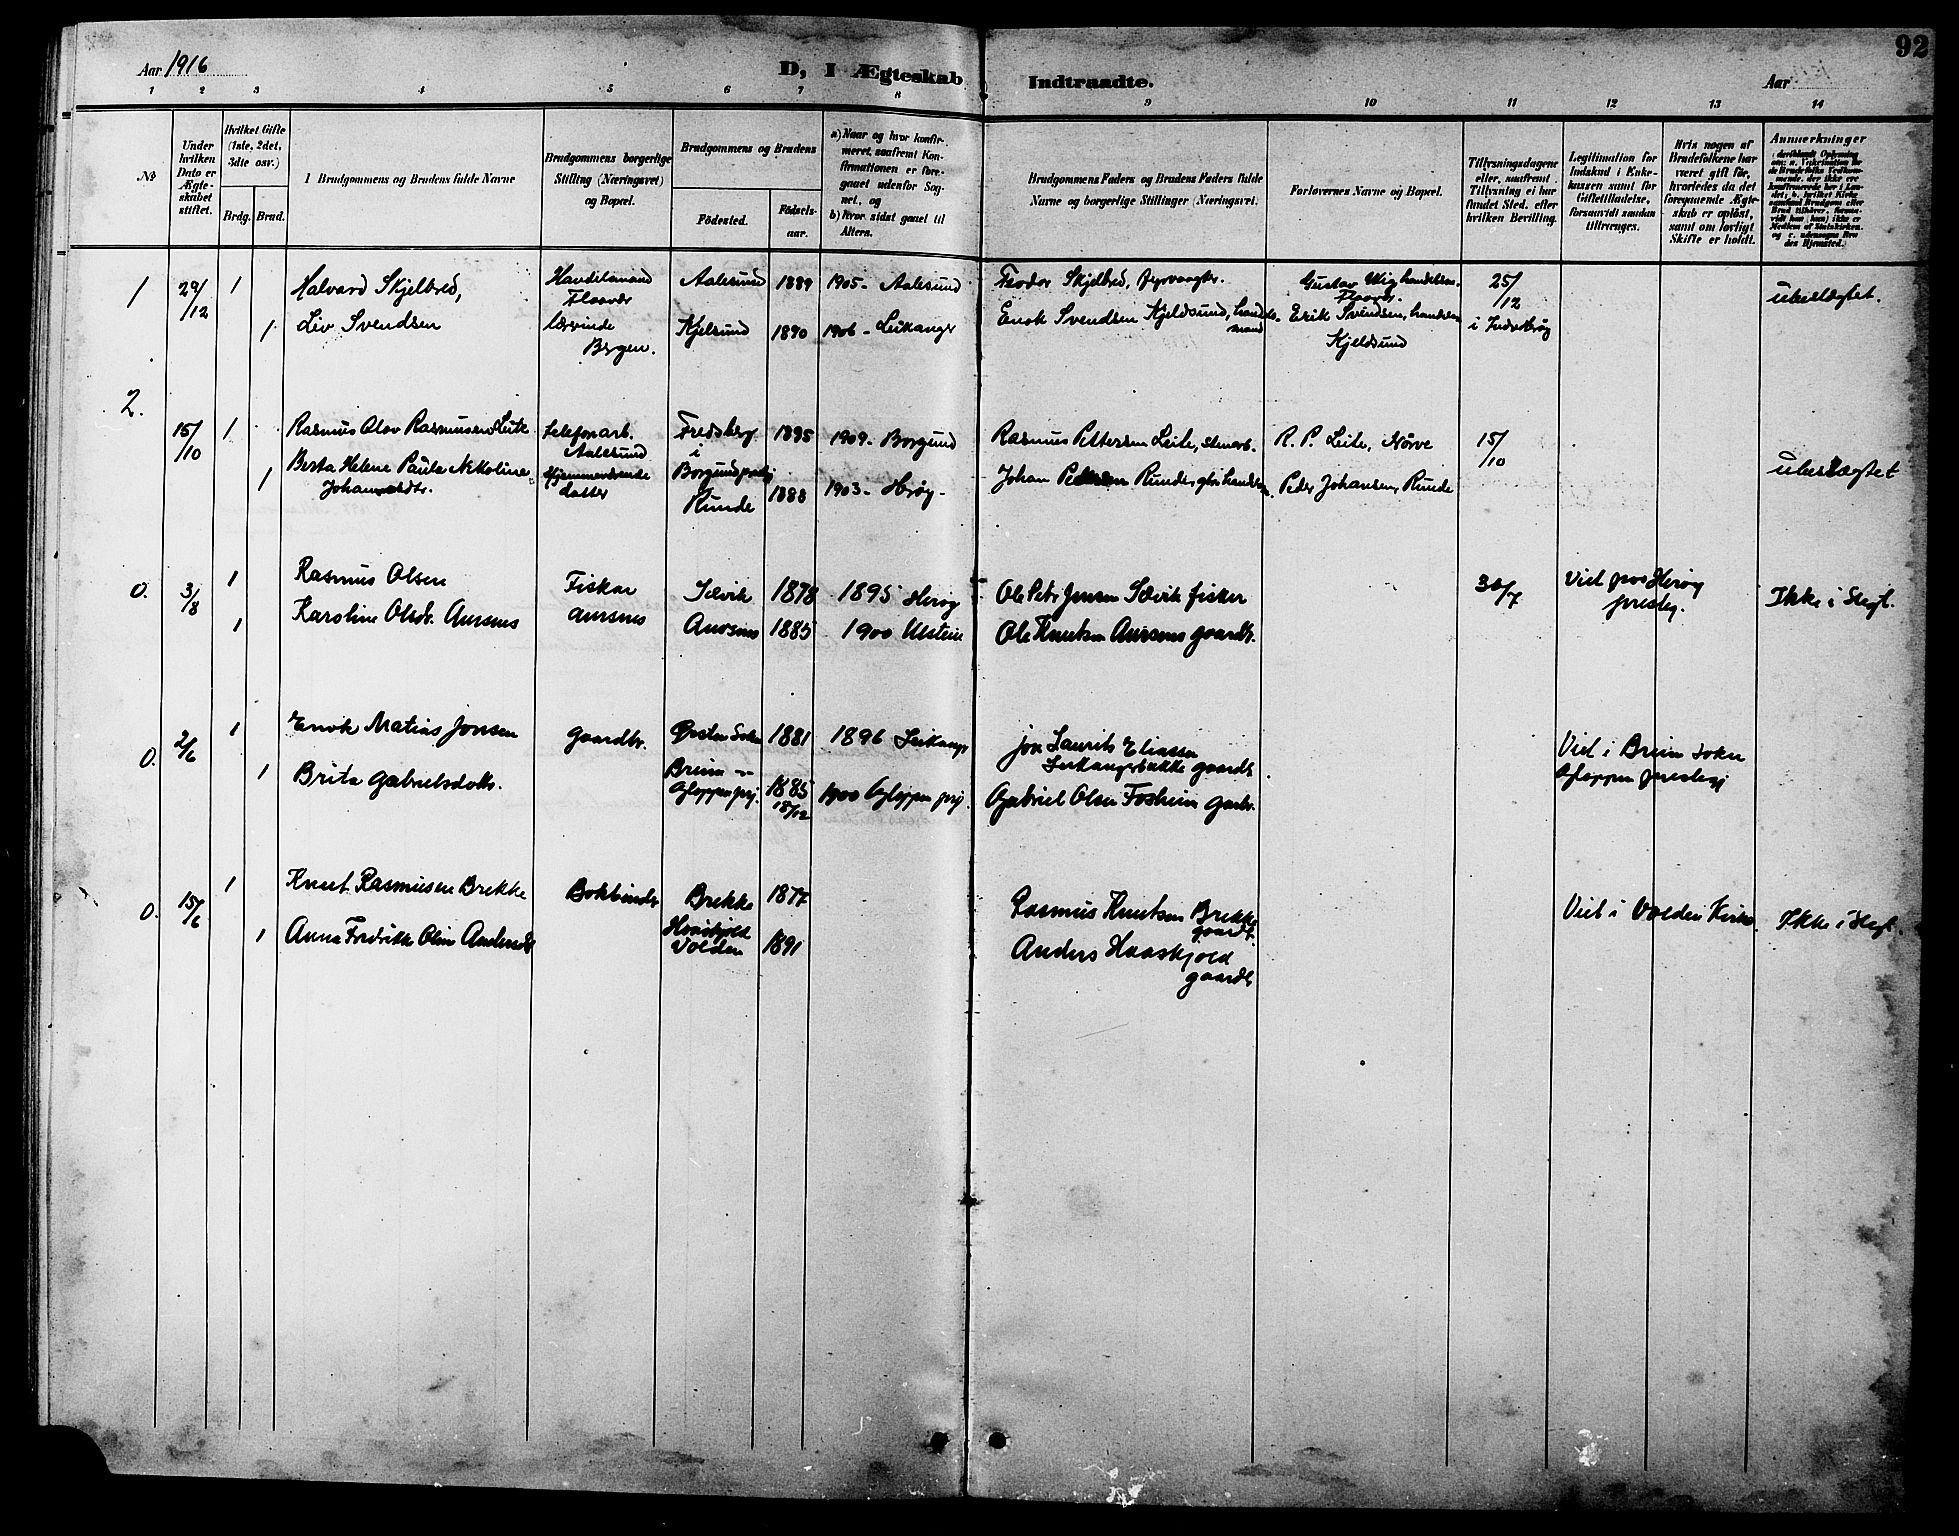 92
Aar 1916
D, I Ægteskab Indtraadte.
Aar
1 2 3 4 5 6 7 8 9 10 11 12 13 14
No
Under
hvilken
Dato er
Ægte-
skabet
stiftet.
Hvilket Gifte
(1ste, 2det,
3die osv.)
Brdg. Brud.
1 Brudgommens og Brudens fulde Navne
Brudgommens borgerlige
Stilling (Næringsvei)
og Bopæl.
Brudgommens og Brudens
Födested.
Födsels-
aar.
a) Naar og hvor konfir-
meret, saafremt Kon-
firmationen er fore-
gaaet udenfor Sog-
net, og
b) hvor sidst gaaet til
Alters.
Brudgommens Faders og Brudens Faders fulde
Navne og borgerlige Stillinger (Næringsvei).
Forlovernes Navne og Bopæl.
Tillysningsdagene
eller, saafremt
Tillysning ei har
fundet Sted, efter
hvilken Bevilling.
Legitimation for
Indskud i Enke-
kassen samt for
Giftetilladelse,
forsaavidt saadan
tiltrænges.
Hvis nogen af
Brudefolkene har
været gift för,
hvorledes da det
foregaaende Ægte-
skab er oplöst,
samt om lovligt
Skifte er holdt.
Anmærkninger
1 29/12 1 Halvard Skjelbred, Handelsmand Flaavær Aalesund 1889 1905 - Aalesund Feodor Skjelbred, fyrvogter Gustav Wig handelsm. Flaavær. 25/12 ubeslægtet.
1 Liv Svendsen lærvinde Bergen. Kjelsund 1890 1906 - Leikanger Enok Svendsen Kjeldsund, handelsmand Erik Svendsen, handelsm Kjeldsund i Indre Herøy
2. 15/10 1 Rasmus Olav Rasmussen Leite telefonarb. Aalesund Fredsberg i Borgund prstgj 1895 1909 - Borgund Rasmus Pettersen Leite, stenarb. R. P. Leite, Nörve 15/10 ubeslægtet
1 Berta Helene Paula Nikoline Johansdtr. Hjemmeværende datter Runde 1888 1903 - Herøy - Johan Pedersen Runde, gbr, handelsm. Peder Johansen, Runde
0. 3/8 1 Rasmus Olsen Fisker Aursnes Selvik 1878 1895 Herøy Ole Petr Jensen Selvik fisker 30/7 Viet paa Herøy prestg. Ikke i Slegt.
1 Karoline Olsdr. Aursnes Aursnes 1885 1900 Ulstein Ole Knutsen Aursnes gaardbr.
0. 2/6 1 Enok Matias Jonsen gaardbr. Ørsten Sokn 1881 1896 Leikanger Jon Laurits Eliassen Leikangerbakke gaardbr. Viet i Breim Sokn Gloppen prestegj
1 Brita Gabrielsdotter. Breim Gloppen prgj. 1885 15/12 1900 Gloppen prgj. Gabriel Olsen Fosheim gardbr.
0. 15/6 1 Knut Rasmusen Brekke Bokbinder Brekke 1877 Rasmus Knutsen Brekke gaardbr. Viet i Volden Kirke. Ikke i Slegt.
1 Anna Fredrikke Olin Andersdt Haaskjold Volden 1891 Anders Haaskjold gaardbr